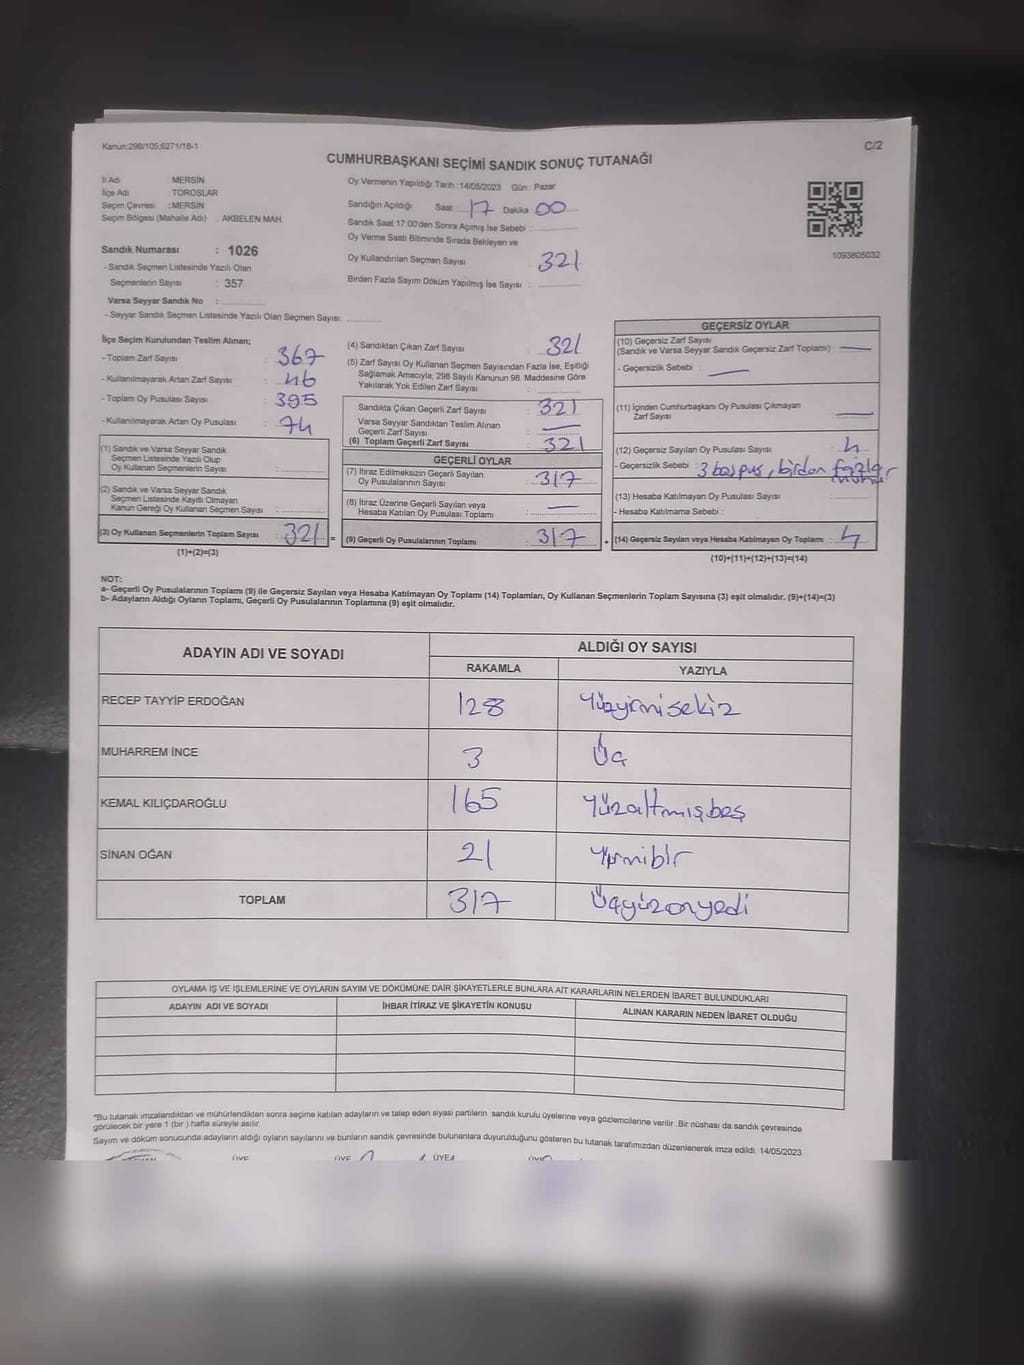 Kanun:298/105;6271/18-1
C/2
CUMHURBAŞKANI SEÇİMİ SANDIK SONUÇ TUTANAĞI
İl Adı : MERSİN
İlçe Adı : TOROSLAR
Seçim Çevresi : MERSİN
Seçim Bölgesi (Mahalle Adı) : AKBELEN MAH.
Sandık Numarası : 1026
- Sandık Seçmen Listesinde Yazılı Olan
Seçmenlerin Sayısı : 357
Varsa Seyyar Sandık No :
- Seyyar Sandık Seçmen Listesinde Yazılı Olan Seçmen Sayısı:
Oy Vermenin Yapıldığı Tarih :14/05/2023 Gün : Pazar
Sandığın Açıldığı Saat : 17 Dakika : 00
Sandık Saat 17:00'den Sonra Açımış İse Sebebi :
Oy Verme Saati Bitiminde Sırada Bekleyen ve
Oy Kullandırılan Seçmen Sayısı : 321
Birden Fazla Sayım Döküm Yapılmış İse Sayısı :
1093805032
İlçe Seçim Kurulundan Teslim Alınan;
- Toplam Zarf Sayısı : 367
- Kullanılmayarak Artan Zarf Sayısı : 46
- Toplam Oy Pusulası Sayısı : 395
- Kullanılmayarak Artan Oy Pusulası : 74
(1) Sandık ve Varsa Seyyar Sandık
Seçmen Listesinde Yazılı Olup
Oy Kullanan Seçmenlerin Sayısı :
(2) Sandık ve Varsa Seyyar Sandık
Seçmen Listesinde Kayıtlı Olmayan
Kanun Gereği Oy Kullanan Seçmen Sayısı :
(3) Oy Kullanan Seçmenlerin Toplam Sayısı : 321 =
(1)+(2)=(3)
(4) Sandıktan Çıkan Zarf Sayısı : 321
(5) Zarf Sayısı Oy Kullanan Seçmen Sayısından Fazla İse, Eşitliği
Sağlamak Amacıyla; 298 Sayılı Kanunun 98. Maddesine Göre
Yakılarak Yok Edilen Zarf Sayısı :
Sandıkta Çıkan Geçerli Zarf Sayısı : 321
Varsa Seyyar Sandıktan Teslim Alınan
Geçerli Zarf Sayısı : —
(6) Toplam Geçerli Zarf Sayısı : 321
GEÇERLİ OYLAR
(7) İtiraz Edilmeksizin Geçerli Sayılan
Oy Pusulalarının Sayısı : 317
(8) İtiraz Üzerine Geçerli Sayılan veya
Hesaba Katılan Oy Pusulası Toplamı : —
(9) Geçerli Oy Pusulalarının Toplamı : 317 +
GEÇERSİZ OYLAR
(10) Geçersiz Zarf Sayısı
(Sandık ve Varsa Seyyar Sandık Geçersiz Zarf Toplamı) : —
- Geçersizlik Sebebi : —
(11) İçinden Cumhurbaşkanı Oy Pusulası Çıkmayan
Zarf Sayısı : —
(12) Geçersiz Sayılan Oy Pusulası Sayısı : 4
- Geçersizlik Sebebi : 3 boş pus, birden fazla mühür
(13) Hesaba Katılmayan Oy Pusulası Sayısı :
- Hesaba Katılmama Sebebi :
(14) Geçersiz Sayılan veya Hesaba Katılmayan Oy Toplamı : 4
(10)+(11)+(12)+(13)=(14)
NOT:
a- Geçerli Oy Pusulalarının Toplamı (9) ile Geçersiz Sayılan veya Hesaba Katılmayan Oy Toplamı (14) Toplamları, Oy Kullanan Seçmenlerin Toplam Sayısına (3) eşit olmalıdır. (9)+(14)=(3)
b- Adayların Aldığı Oyların Toplamı, Geçerli Oy Pusulalarının Toplamına (9) eşit olmalıdır.
ADAYIN ADI VE SOYADI
ALDIĞI OY SAYISI
RAKAMLA YAZIYLA
RECEP TAYYİP ERDOĞAN 128 Yüzyirmisekiz
MUHARREM İNCE 3 Üç
KEMAL KILIÇDAROĞLU 165 Yüzaltmışbeş
SİNAN OĞAN 21 Yirmibir
TOPLAM 317 Üçyüzonyedi
OYLAMA İŞ VE İŞLEMLERİNE VE OYLARIN SAYIM VE DÖKÜMÜNE DAİR ŞİKAYETLERLE BUNLARA AİT KARARLARIN NELERDEN İBARET BULUNDUKLARI
ADAYIN ADI VE SOYADI İHBAR İTİRAZ VE ŞİKAYETİN KONUSU ALINAN KARARIN NEDEN İBARET OLDUĞU
"Bu tutanak imzalandıktan ve mühürlendikten sonra seçime katılan adayların ve talep eden siyasi partilerin sandık kurulu üyelerine veya gözlemcilerine verilir .Bir nüshası da sandık çevresinde
görülecek bir yere 1 (bir ) hafta süreyle asılır.
Sayım ve döküm sonucunda adayların aldığı oyların sayılarını ve bunların sandık çevresinde bulunanlara duyurulduğunu gösteren bu tutanak tarafımızdan düzenlenerek imza edildi. 14/05/2023